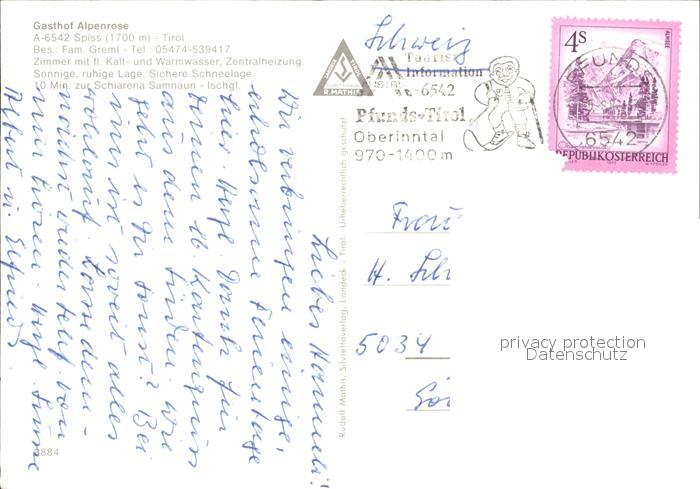 Gasthof Alpenrose
A-6542 Spiss (1700 m) - Tirol
Bes.: Fam. Greml - Tel : 05474-539417
Zimmer mit fl. Kalt- und Warmwasser, Zentralheizung.
Sonnige, ruhige Lage. Sichere Schneelage.
10 Min. zur Schiarena Samnaun - Ischgl.
Schweiz
R. MATHIS
Tourist
Information
6542
Pfunds-Tirol
Oberinntal
970-1400 m
4S
ALMSEE
PFUNDS
6542
REPUBLIK ÖSTERREICH
Liebes Hanneli!
Wir verbringen einige,
erholsame Ferientage
hier. Herzl. Dank für
deinen lb. Kartengruss
aus dem Süden. Wie
geht es Dir sonst? Bei
uns ist soweit alles
wohlauf. Lass dem-
nächst wieder telef. von
mir hören. Herzl. Grüsse
Albert u.
Rudolf Mathis, Silvrettaverlag, Landeck - Tirol. Urheberrechtlich geschützt
Frau
H.
5034
privacy protection
Datenschutz
8884